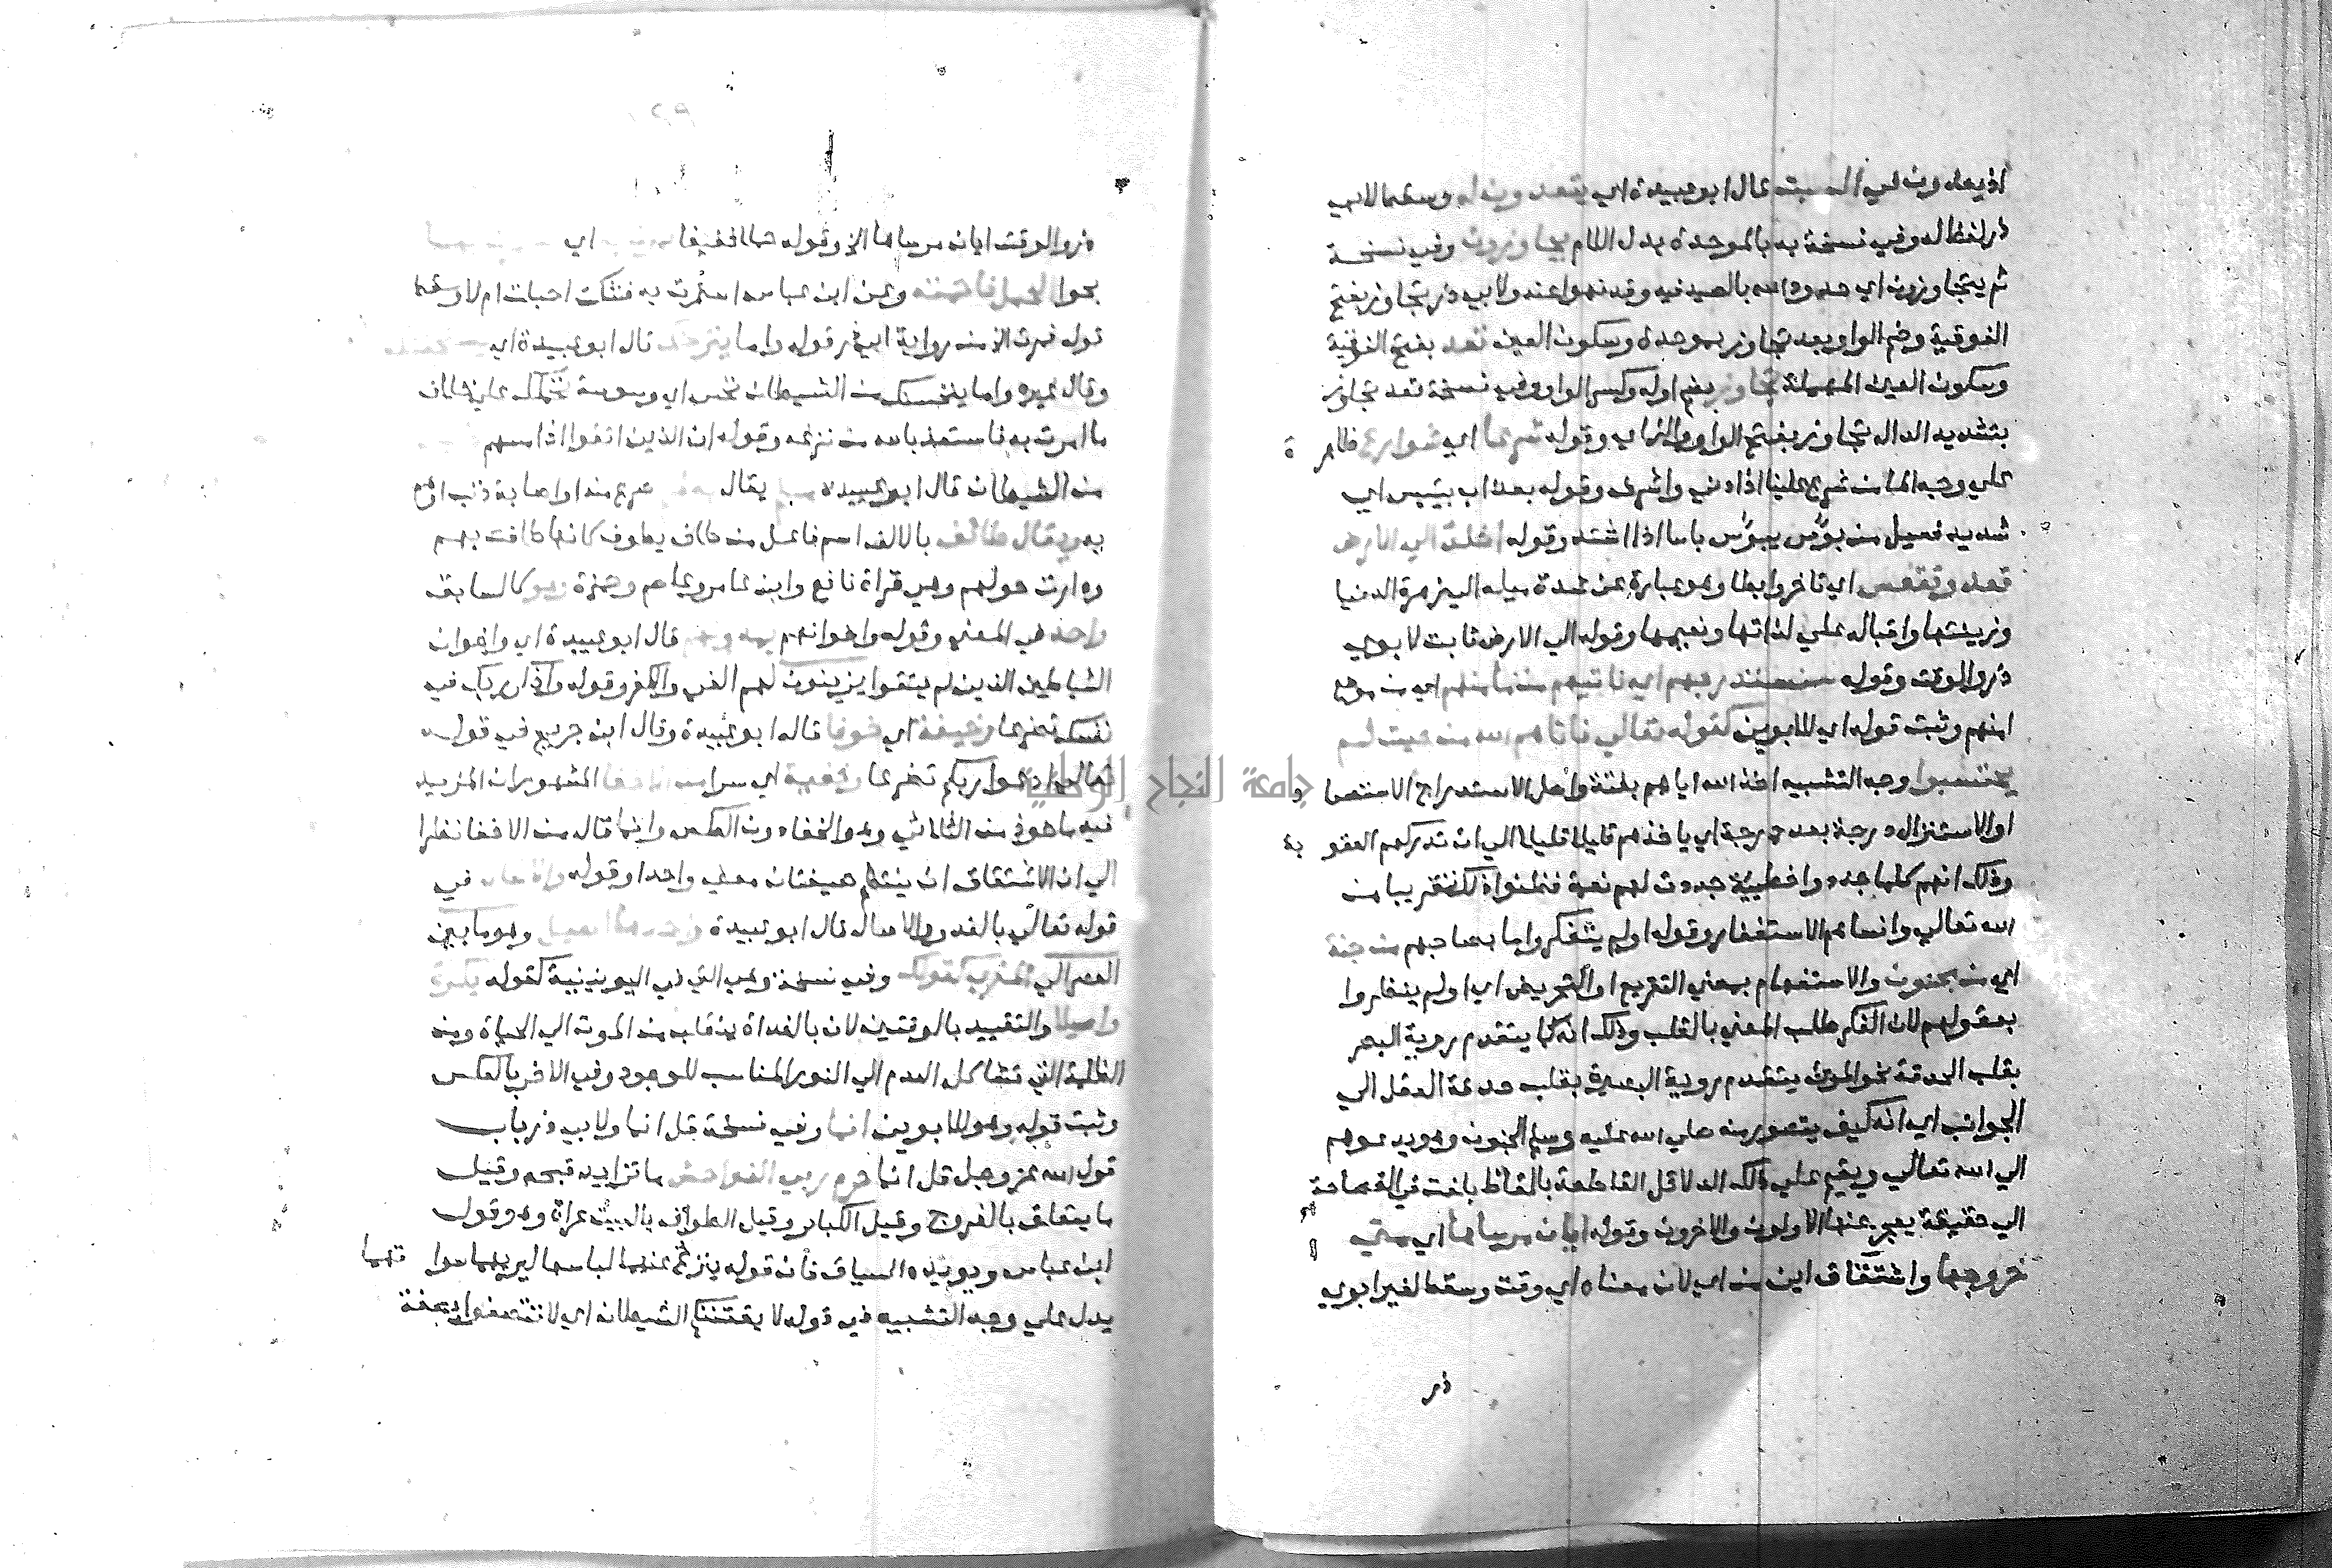 اذ يعدون في السبت قال ابو عبيدة اي يتعدون له وسقط لابي
ذر لفظ له وفي نسخة به بالموحدة بدل اللام يجاوزون وفي نسخة
ثم يتجاوزون اي حدود الله بالصيد فيه وقد نهوا عنه ولابي ذر تجاوز بفتح
الفوقية وضم الواو بعد تجاوز بموحدة وسكون العين تعد بفتح الفوقية
وسكون العين المهملة تجاوز بضم اوله وكسر الواو وفي نسخة تعد تجاوز
بتشديد الدال تجاوز بفتح الواو والزاي وقوله شرعا اي شوارع ظاهرة
علي وجه الماء من شرع علينا اذا دني واشرف وقوله بعذاب بئيس اي
شديد فعيل من بؤس يبؤس باسا اذا اشتد وقوله اخلد الي الارض
قعد وتقعس اي تاخر وابطا وهو عبارة عن شدة ميله الي زهرة الدنيا
وزينتها واقباله علي لذاتها ونعيمها وقوله الي الارض ثابت لابوي
ذر والوقت وقوله سنستدرجهم اي ناتيهم من مأمنهم اي من موضع
امنهم وثبت قوله اي للابوين كقوله تعالي فاتاهم الله من حيث لم
يحتسبوا وجه التشبيه اخذ الله اياهم بغتة واصل الاستدراج الاستصعاد
او الاستنزال درجة بعد درجة اي ياخذهم قليلا قليلا الي ان تدركهم العقوبة
وذلك انهم كلما جددوا خطيئة جددت لهم نعمة فظنوا ذلك تقريبا من
الله تعالي وانساهم الاستغفار وقوله اولم يتفكروا ما بصاحبهم من جنة
اي من جنون والاستفهام بمعني التقريع او التحريض اي اولم ينظروا
بعقولهم لان الفكر طلب المعني بالقلب وذلك انه كما يتقدم رؤية البصر
بقلب الحدقة نحو المرئي يتقدم روية البصيرة بقلب حدقة العقل الي
الجوانب اي انه كيف يتصور منه صلي الله عليه وسلم الجنون وهو يدعوهم
الي الله تعالي ويقيم علي ذلك الدلائل القاطعة بالفاظ بلغت في الفصاحة
الي حقيقة يعجز عنها الاولون والاخرون وقوله ايان مرساها اي متي
خروجها واشتقاق اين من اي لان معناه اي وقت وسقط لغير ابوي
ذر
ذر والوقت ايان مرساها الخ وقوله حملا خفيفا اي
بحوا الحمل فاتمته وعن ابن عباس استمرت به فشكت احبلت ام لا وسقط
قوله فمرت الخ من رواية ابي ذر قوله واما ينزغنك قال ابو عبيدة اي يستخفنك
وقال غيره واما ينخسنك من الشيطان نخس اي وسوسة تحملك علي خلاف
ما امرت به فاستعذ بالله من نزغه وقوله ان الذين اتقوا اذا مسهم
من الشيطان قال ابو عبيدة يقال صرع منه او اصابة ذنب او هم
به ويقال طائف بالالف اسم فاعل من طاف يطوف كانها طافت بهم
ودارت حولهم وهي قراة نافع وابن عامر وعاصم وحمزة وهو كالسابق
واحد في المعني وقوله واخوانهم يمدونهم قال ابو عبيدة اي واخوان
الشياطين الذين لم يتقوا يزينون لهم الغي والكفر وقوله واذكر ربك في
نفسك تضرعا وخيفة اي خوفا قاله ابو عبيدة وقال ابن جريج في قوله
تعالي ادعوا ربكم تضرعا وخفية اي سرا من الاخفا المشهور ان المزيد
فيه ماخوذ من الثلاثي وهو الخفاء دون العكس وانما قال من الاخفا نظرا
الي ان الاشتقاق ان ينتظم صيغتان معني واحدا وقوله والاصال في
قوله تعالي بالغدو والاصال قال ابو عبيدة واحدها اصيل وهو ما بين
العصر الي المغرب كقولك وفي نسخة وهي التي في اليونينية كقوله بكرة
واصيلا والتقييد بالوقتين لان بالغداة ينقلب من الموت الي الحياة ومن
الظلمة التي تشاكل العدم الي النور المناسب للوجود وفي الاخر بالعكس
وثبت قوله وهو للابوين انما وفي نسخة قل انما ولابي ذر باب
قول الله عز وجل قل انما حرم ربي الفواحش ما تزايد قبحه وقيل
ما يتعلق بالفروج وقيل الكبائر وقيل الطواف بالبيت عراة وهو قول
ابن عباس ويؤيده السياق فان قوله ينزع عنهما لباسهما ليريهما سواتهما
يدل علي وجه التشبيه في قوله لا يفتننكم الشيطان اي لا تتصفوا بصفة
جامعة النجاح الوطنية